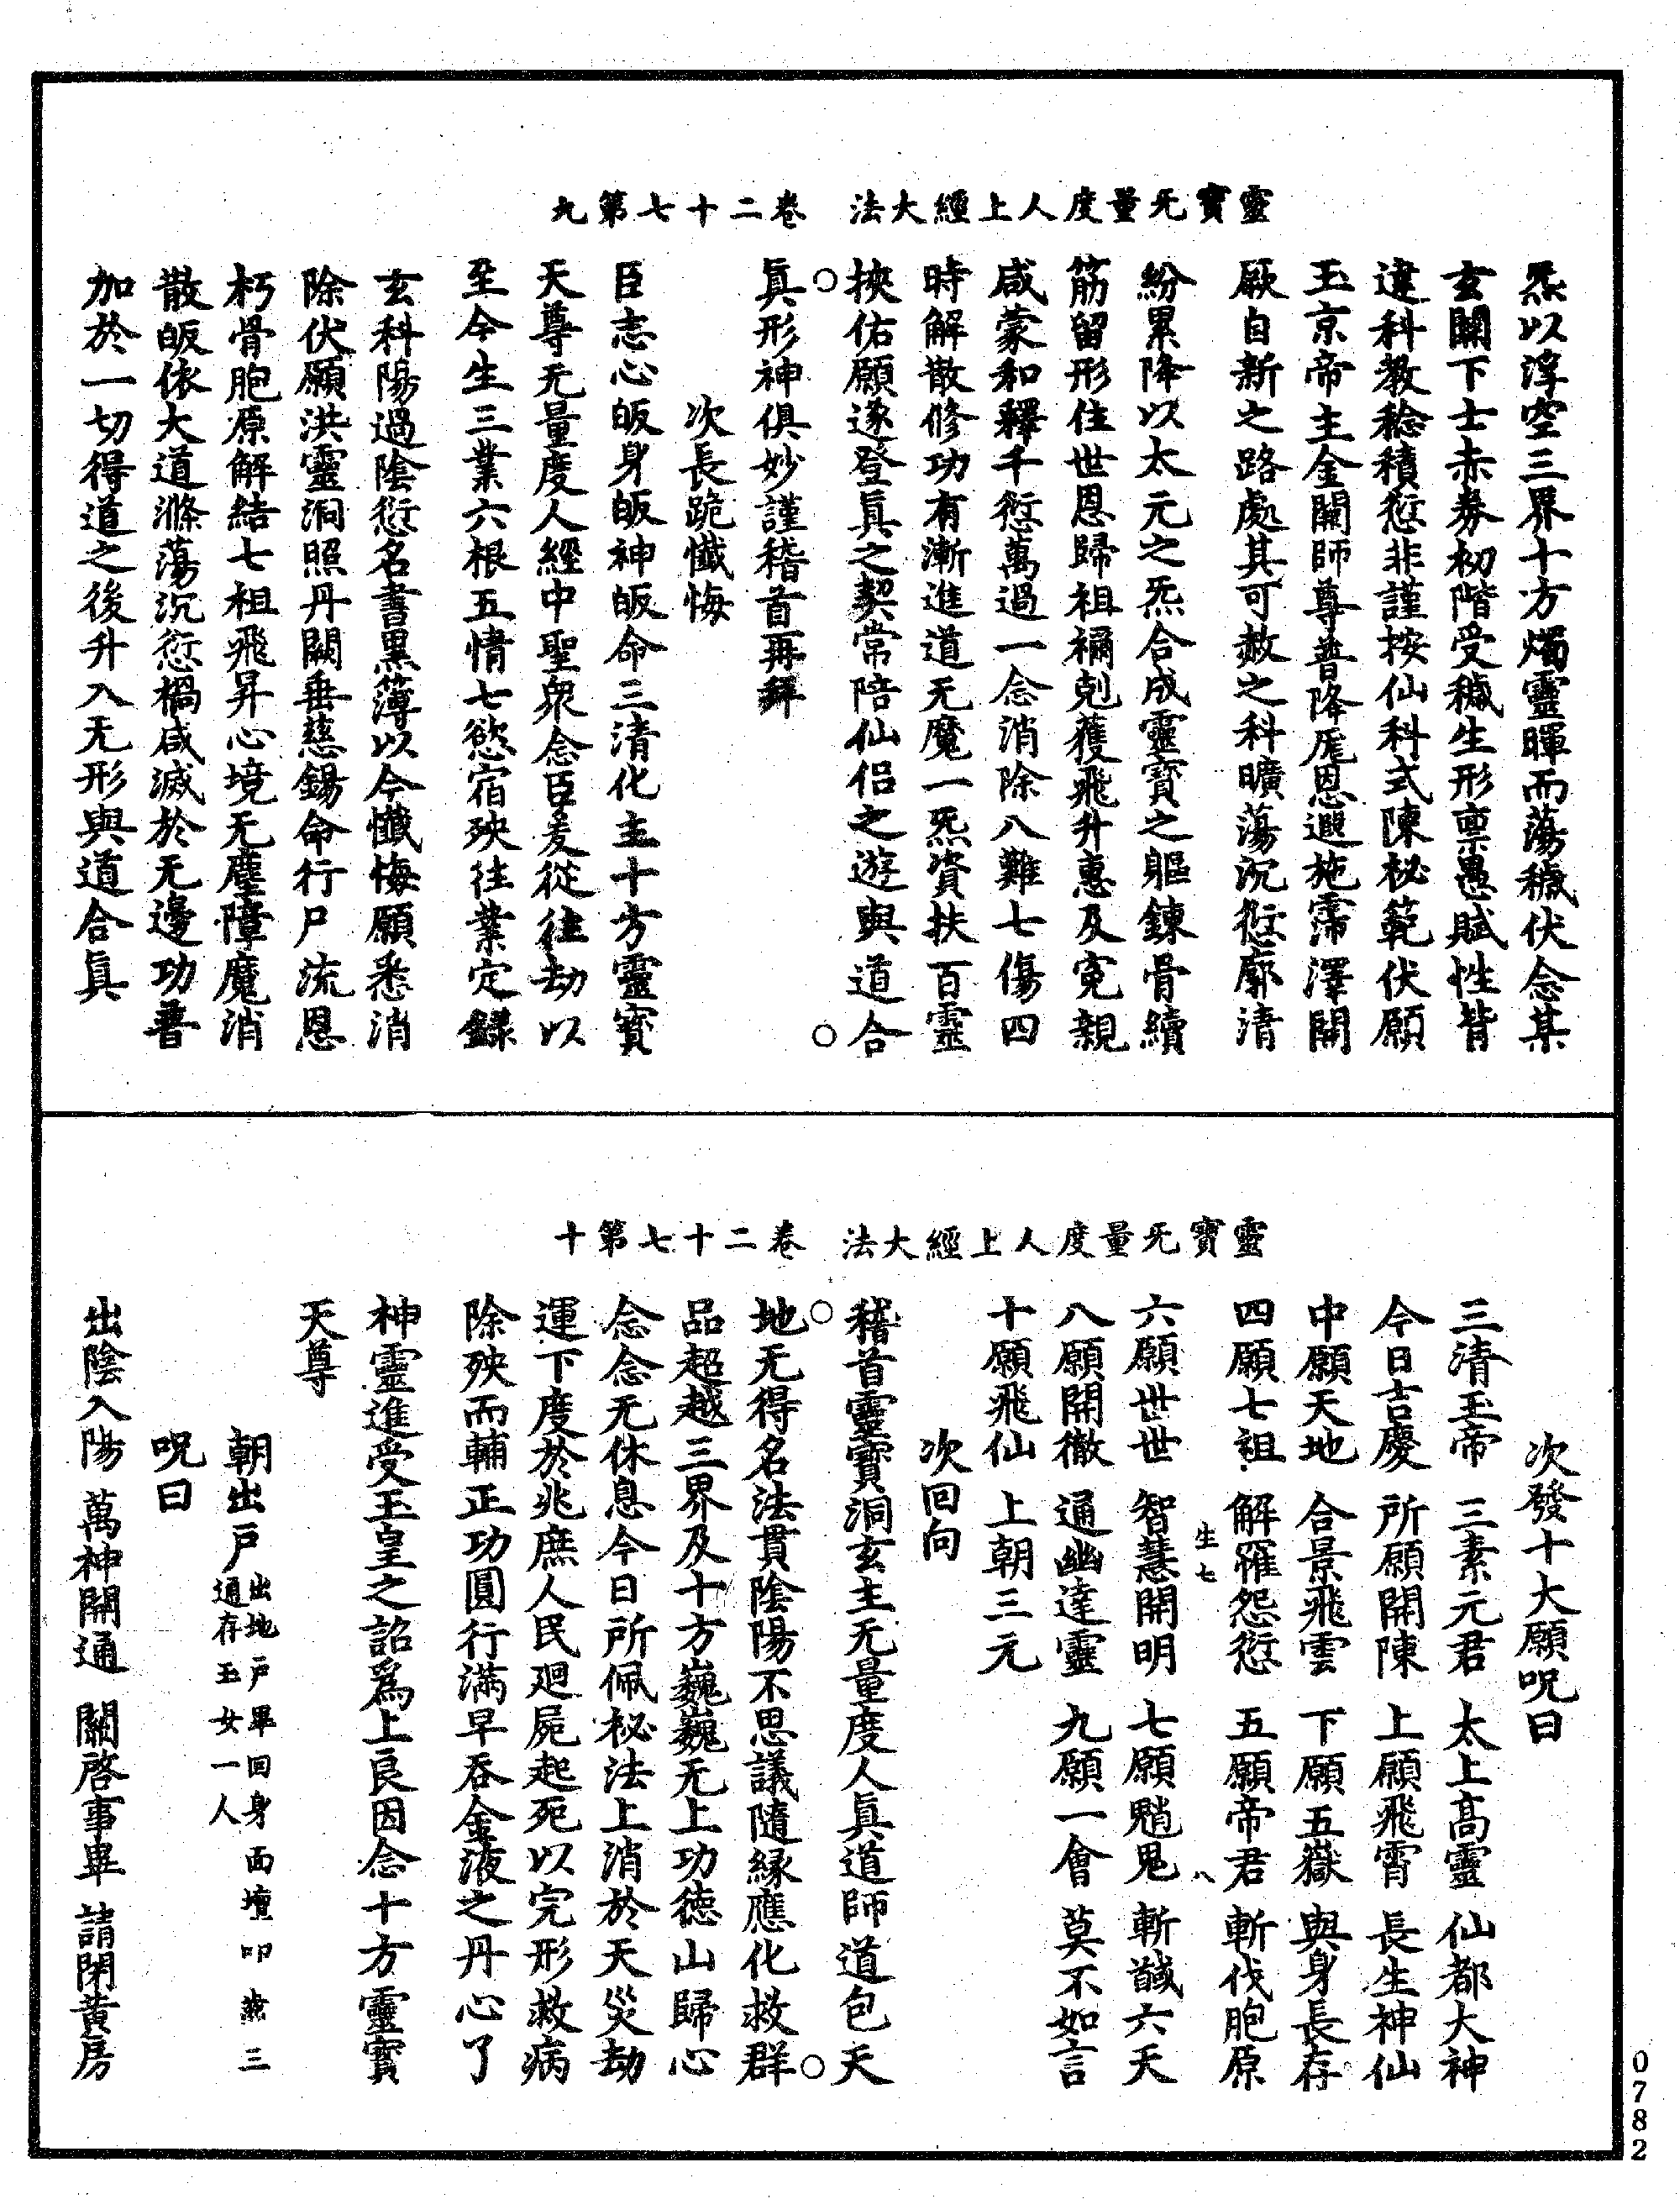 靈寶无量度人上經大法 卷二十七第九
炁以浮空三界十方燭靈暉而蕩穢伏念某
玄關下士赤券初階受穢生形稟愚賦性皆
違科教稔積愆非謹按仙科式陳祕範伏願
玉京帝主金闕師尊普降厖恩遐施霈澤開
厥自新之路處其可赦之科曠蕩沉愆廓清
紛累降以太元之炁合成靈寶之軀鍊骨續
筋留形住世恩歸祖禰剋獲飛升惠及寃親
咸蒙和釋千愆萬過一念消除八難七傷四
時解散修功有漸進道无魔一炁資扶百靈
挾佑願遂登真之契常陪仙侶之遊與道合
真形神俱妙謹稽首再拜
次長跪懺悔
臣志心皈身皈神皈命三清化主十方靈寶
天尊无量度人經中聖衆念臣爰從往劫以
至今生三業六根五情七慾宿殃往業定録
玄科陽過陰愆名書黑簿以今懺悔願悉消
除伏願洪靈洞照丹闕垂慈錫命行尸流恩
朽骨胞原解結七祖飛昇心境无塵障魔消
散皈依大道滌蕩沉愆禍咸滅於无邊功普
加於一切得道之後升入无形與道合真
靈寶无量度人上經大法 卷二十七第十
次發十大願呪曰
三清玉帝 三素元君 太上高靈 仙都大神
今日吉慶 所願開陳 上願飛霄 長生神仙
中願天地 合景飛雲 下願五嶽 與身長存
四願七祖 解罹怨愆 五願帝君 斬伐胞原
生七 八
六願世世 智慧開明 七願魈鬼 斬馘六天
八願開徹 通幽達靈 九願一會 莫不如言
十願飛仙 上朝三元
次回向
稽首靈寶洞玄主无量度人真道師道包天
地无得名法貫陰陽不思議隨緣應化救群
品超越三界及十方巍巍无上功德山歸心
念念无休息今日所佩祕法上消於天災劫
運下度於兆庶人民廻屍起死以完形救病
除殃而輔正功圓行滿早吞金液之丹心了
神靈進受玉皇之詔爲上良因念十方靈寶
天尊
朝出戶出地戶畢回身面壇叩齒三
通存玉女一人
呪曰
出陰入陽 萬神開通 關啓事畢 請閉黃房
0782